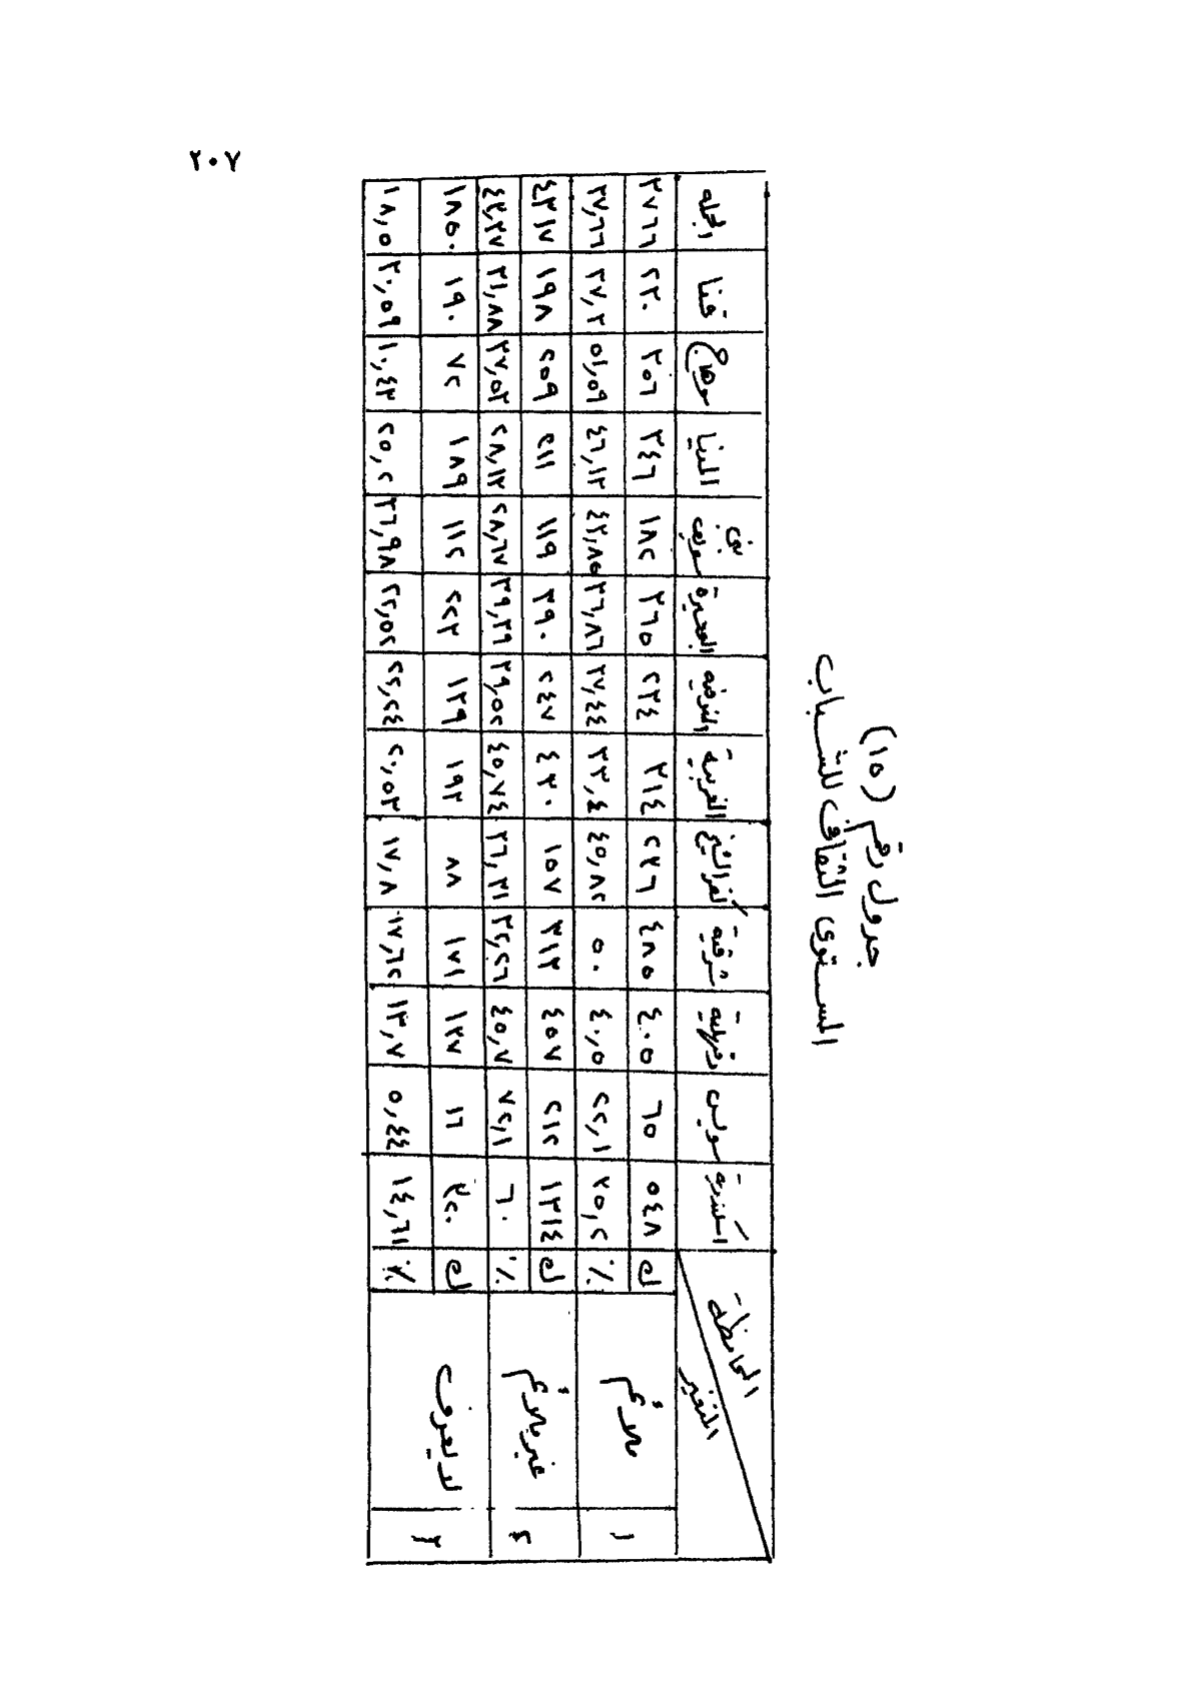 ٢٠٧
جدول رقم (١٥)
المستوى الثقافى للشباب
المحافظة المتغير اسكندرية سويس دقهلية شرقية كفر الشيخ الغربية المنوفيه البحيرة بنى سويف المنيا سوهاج قنا الجمله
١ ملائم ك ٥٤٨ ٦٥ ٤٠٥ ٤٨٥ ٢٢٦ ٣١٤ ٢٣٤ ٣٦٥ ١٨٢ ٣٤٦ ٣٥٦ ٢٣٠ ٣٧٦٦
٪ ٢٥,٢ ٢٢,١ ٤٠,٥ ٥٠ ٤٥,٨٢ ٣٣,٤ ٣٧,٤٤ ٣٦,٨٦ ٤٣,٨٥ ٤٦,١٣ ٥١,٥٩ ٣٧,٣ ٣٧,٦٦
٢ غير ملائم ك ١٣١٤ ٢١٢ ٤٥٧ ٣١٣ ١٥٧ ٤٣٠ ٢٤٧ ٣٩٠ ١١٩ ٢١١ ٢٥٩ ١٩٨ ٤٣١٧
٪ ٦٠ ٧٢,١ ٤٥,٧ ٣٢,٢٦ ٣٦,٣١ ٤٥,٧٤ ٣٩,٥٢ ٣٩,٣٩ ٢٨,٦٧ ٢٨,١٣ ٣٧,٥٣ ٣١,٨٨ ٤٣,٣٧
٣ لا يعرف ك ٣٢٠ ١٦ ١٣٧ ١٧١ ٨٨ ١٩٣ ١٣٩ ٢٢٣ ١١٢ ١٨٩ ٧٢ ١٩٠ ١٨٥٠
٪ ١٤,٦١ ٥,٤٤ ١٣,٧ ١٧,٦٢ ١٧,٨ ٢٠,٥٣ ٢٢,٢٤ ٢٢,٥٢ ٢٦,٩٨ ٢٥,٢ ١٠,٤٣ ٣٠,٥٩ ١٨,٥